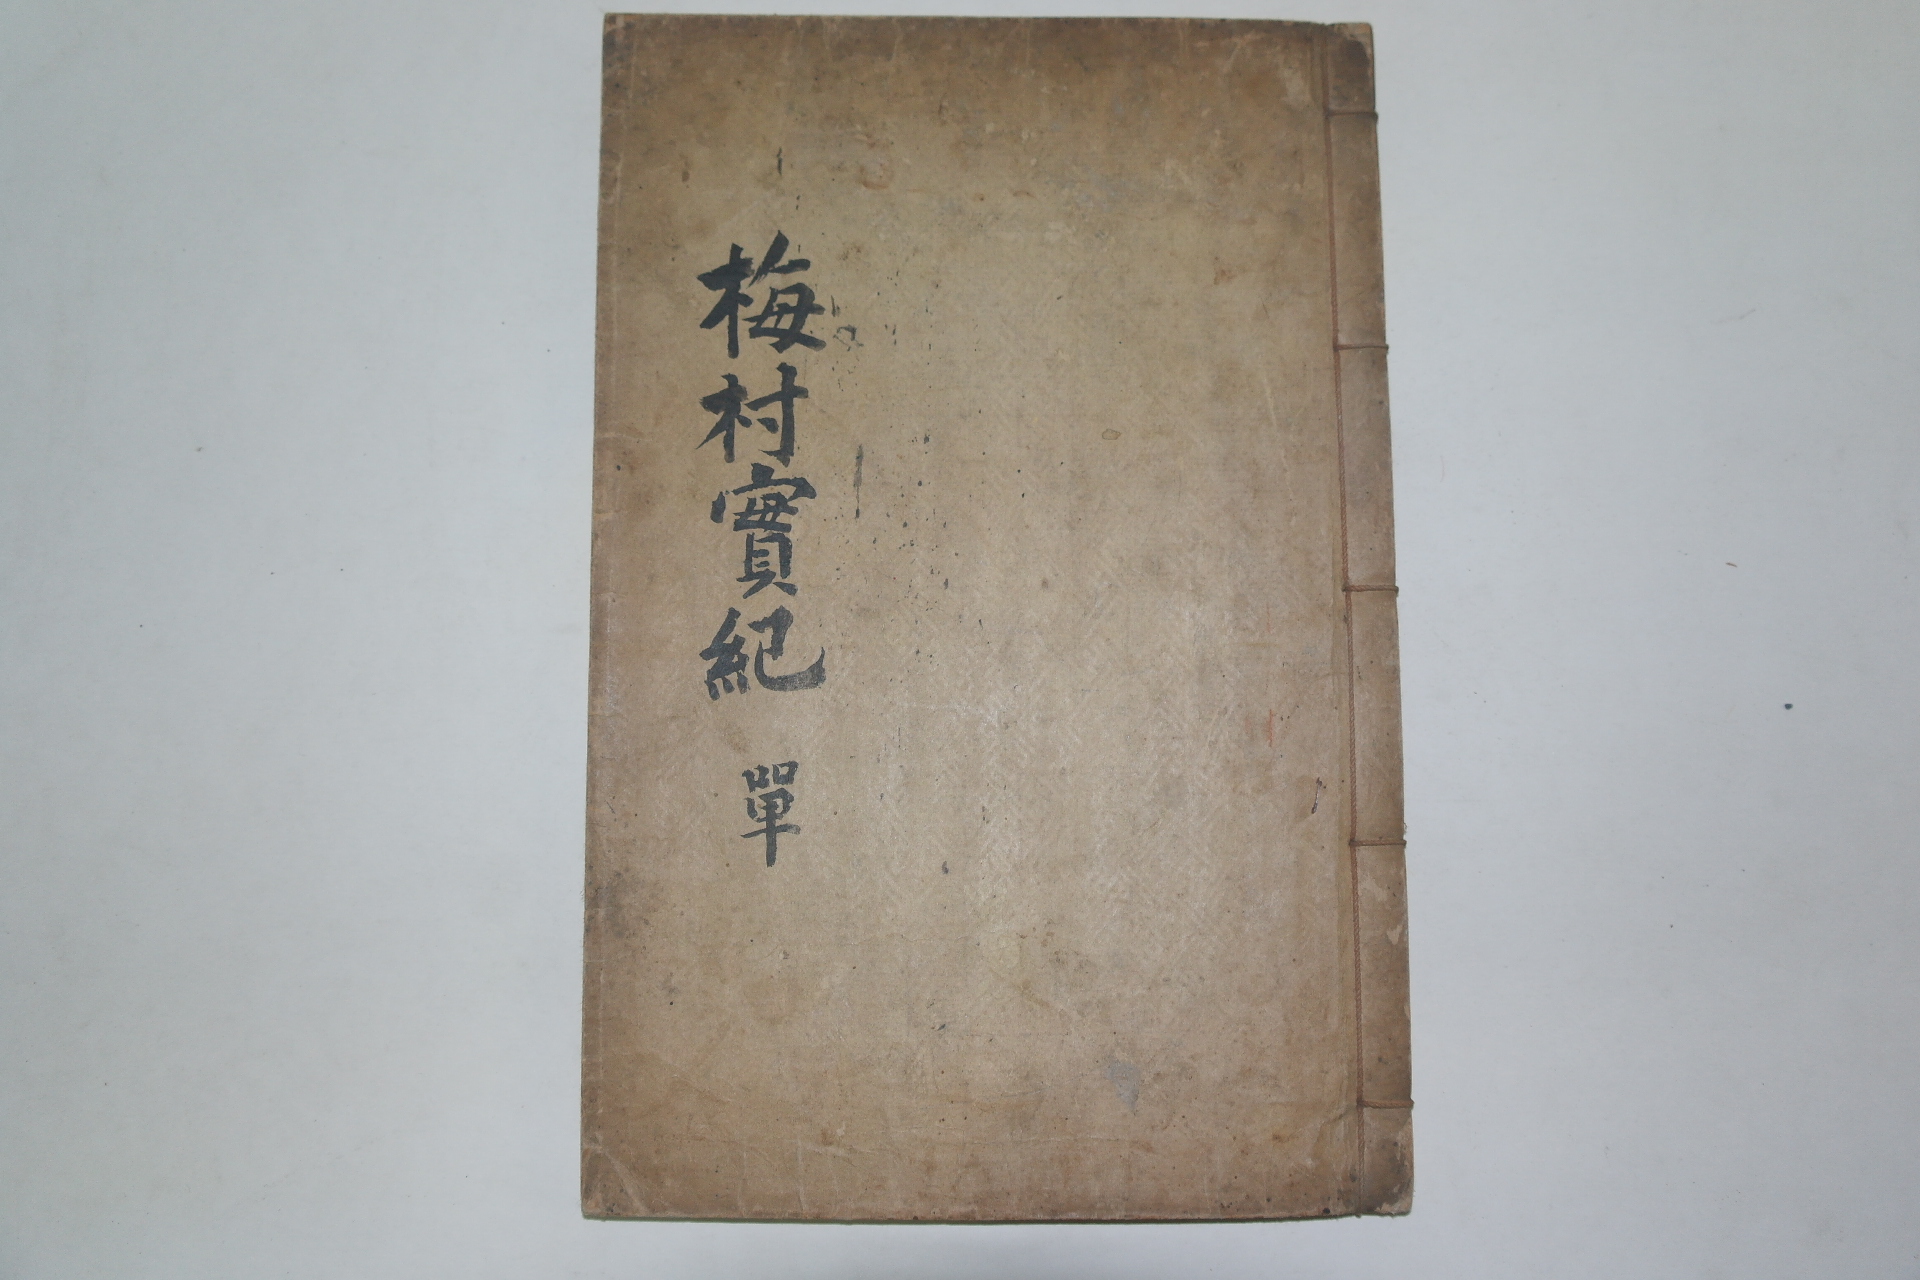 梅村實紀 單